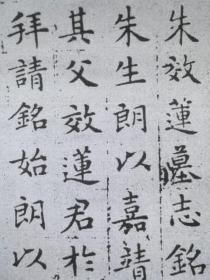 朱效蓮墓志銘
朱生朗以嘉靖
其父效蓮君於
拜請銘始朗以